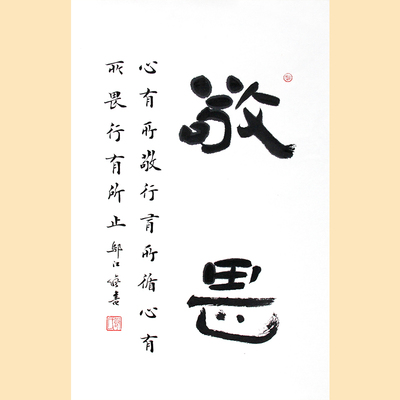 敬畏
心有所敬行有所循心有
所畏行有所止鄞江
書